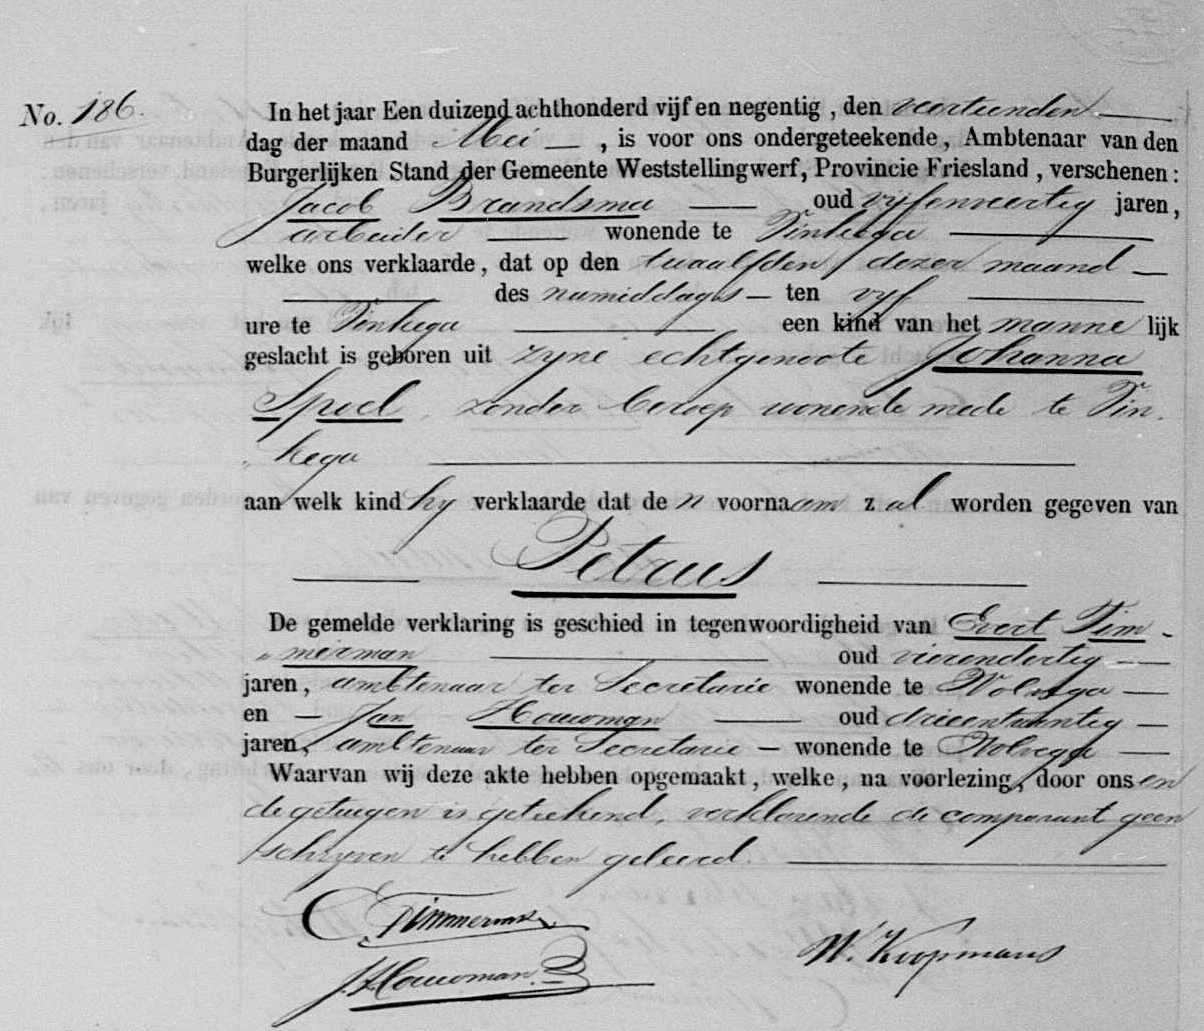 No. 186. In het jaar Een duizend achthonderd vijf en negentig, den veertienden
dag der maand Mei, is voor ons ondergeteekende, Ambtenaar van den
Burgerlijken Stand der Gemeente Weststellingwerf, Provincie Friesland, verschenen:
Jacob Brandsma oud vijfenveertig jaren,
arbeider wonende te Vinkega
welke ons verklaarde, dat op den twaalfden dezer maand
des namiddags ten vyf
ure te Vinkega een kind van het manne lijk
geslacht is geboren uit zyne echtgenoote Johanna
Spoel, zonder beroep wonende mede te Vin-
kega
aan welk kind hy verklaarde dat de n voornaam zal worden gegeven van
Petrus
De gemelde verklaring is geschied in tegenwoordigheid van Evert Tim-
merman oud vierendertig
jaren, ambtenaar ter Secretarie wonende te Wolvega
en Jan Houwman oud drieentwintig
jaren, ambtenaar ter Secretarie wonende te Wolvega
Waarvan wij deze akte hebben opgemaakt, welke, na voorlezing, door ons en
de getuigen is geteekend, verklarende de comparant geen
schryven te hebben geleerd.
E Timmerman
W. Koopmans
J. Houwman